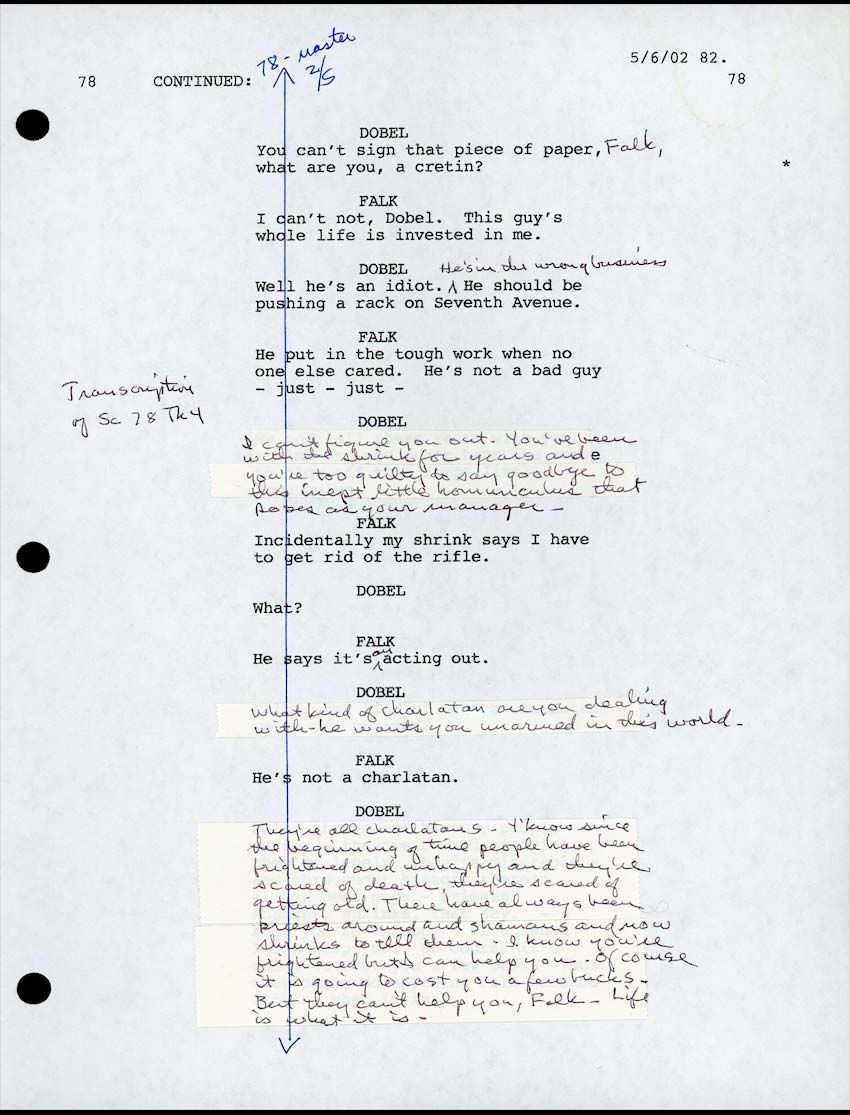 78-master
2/5
5/6/02 82.
78 CONTINUED: 78
DOBEL
You can't sign that piece of paper, Falk,
what are you, a cretin? *
FALK
I can't not, Dobel. This guy's
whole life is invested in me.
DOBEL He's in the wrong business
Well he's an idiot. ^ He should be
pushing a rack on Seventh Avenue.
FALK
He put in the tough work when no
one else cared. He's not a bad guy
- just - just -
Transcription
of Sc 78 Tk 4
DOBEL
I can't figure you out. You've been
with the shrink for years and e
you're too guilty to say goodbye to
this inept little homunculus that
poses as your manager -
FALK
Incidentally my shrink says I have
to get rid of the rifle.
DOBEL
What?
FALK
He says it's ^ acting out.
DOBEL
What kind of charlatan are you dealing
with - he wants you unarmed in this world -
FALK
He's not a charlatan.
DOBEL
They're all charlatans - Y'know since
the beginning of time people have been
frightened and unhappy and they're
scared of death, they're scared of
getting old. There have always been
priests around and shamans and now
shrinks to tell them - I know you're
frightened but I can help you. Of course
it is going to cost you a few bucks -
But they can't help you, Falk - Life
is what it is -